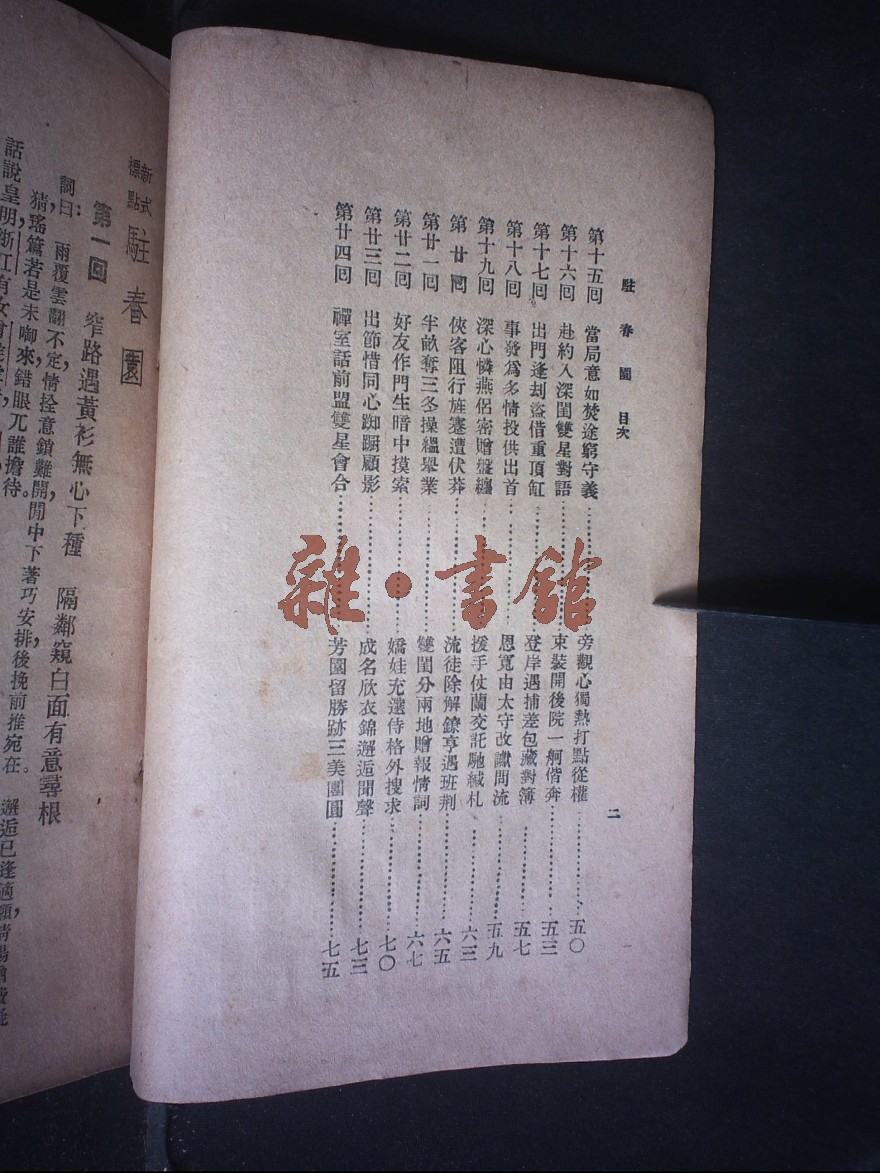 駐春園 目次 二
第十五回 當局意如焚途窮守義 旁觀心獨熱打點從權 五〇
第十六回 赴約入深閨雙星對語 束裝開後院一舸偕奔 五三
第十七回 出門逢刦盜借重頂缸 登岸遇捕差包藏對簿 五七
第十八回 事發爲多情投供出首 恩寬由太守改讞問流 五九
第十九回 深心憐燕侶密贈盤纏 援手仗蘭交託馳緘札 六三
第廿回 俠客阻行旌蹇遭伏莽 流徒除解鐐亨遇班荆 六五
第廿一回 半畝奪三冬操縕舉業 雙閨分兩地贈報情詞 六七
第廿二回 好友作門生暗中摸索 嬌娃充選侍格外搜求 七〇
第廿三回 出節惜同心踟蹰顧影 成名欣衣錦邂逅聞聲 七三
第廿四回 禪室話前盟雙星會合 芳園留勝跡三美團圓 七五
雜·書館
新式標點 駐春園
第一回 窄路遇黃衫無心下種 隔鄰窺白面有意尋根
詞曰：雨覆雲翻不定，情拴意鎖難開，閒中下著巧安排，後挽前推宛在。 邂逅已逢適願，
猜瑤篇若是未啣來，錯眼兀誰擔待。
話說皇明浙江有